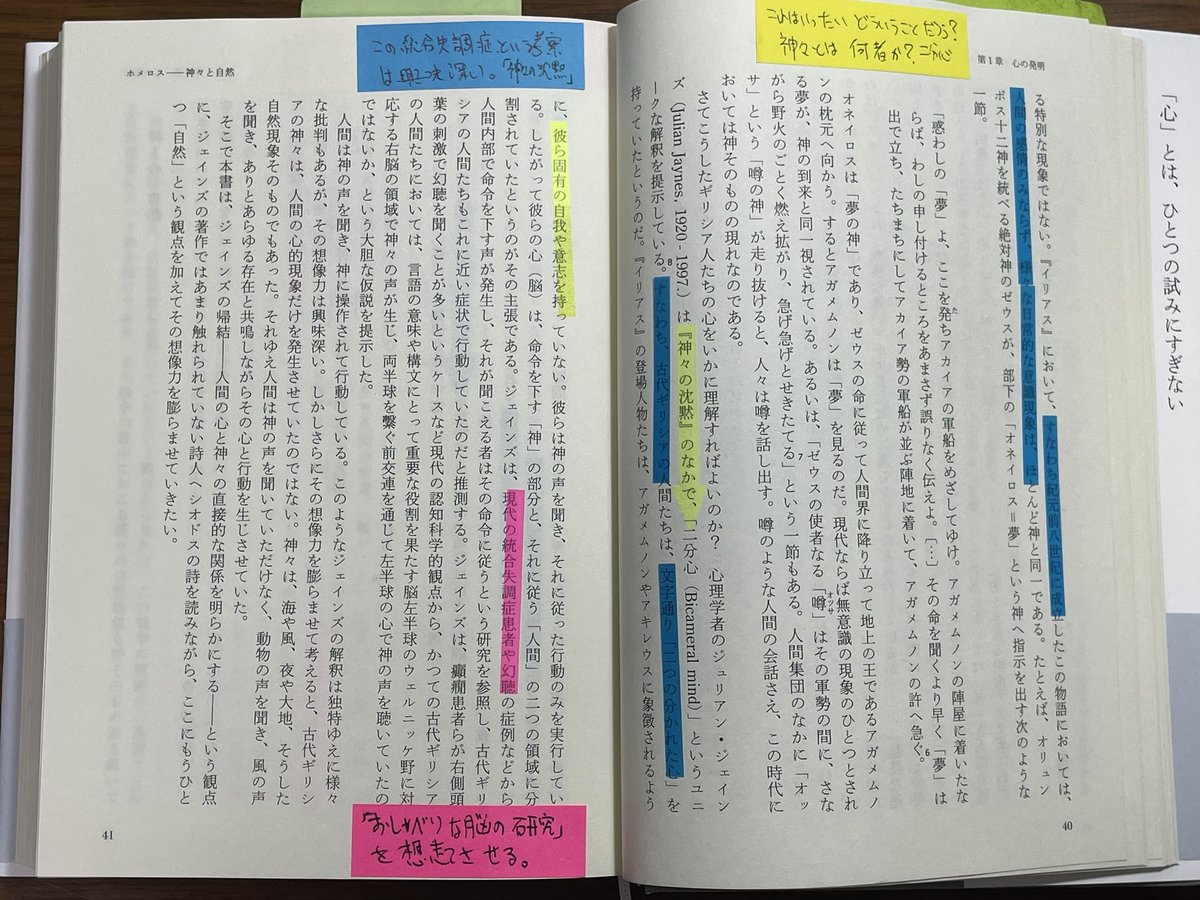 「心」とは、ひとつの試みにすぎない
第1章 心の発明
これはいったい どういうことだろう?
神々とは 何者か? 二分心
る特別な現象ではない。『イリアス』において、すなわち紀元前八世紀に成立したこの物語においては、
人間の感情のみならず、様々な日常的な意識現象は、ほとんど神と同一である。たとえば、オリュン
ポス十二神を統べる絶対神のゼウスが、部下の「オネイロス=夢」という神へ指示を出す次のような
一節。
「惑わしの「夢」よ、ここを発ちアカイアの軍船をめざしてゆけ。アガメムノンの陣屋に着いたな
らば、わしの申し付けるところをあまさず誤りなく伝えよ。〔…〕その命を聞くより早く「夢」は
出で立ち、たちまちにしてアカイア勢の軍船が並ぶ陣地に着いて、アガメムノンの許へ急ぐ。6
オネイロスは「夢の神」であり、ゼウスの命に従って人間界に降り立って地上の王であるアガメムノ
ンの枕元へ向かう。するとアガメムノンは「夢」を見るのだ。現代ならば無意識の現象のひとつとされ
る夢が、神の到来と同一視されている。あるいは、「ゼウスの使者なる「噂」はその軍勢の間に、さな
がら野火のごとく燃え拡がり、急げ急げとせきたてる」7という一節もある。人間集団のなかに「オッ
サ」という「噂の神」が走り抜けると、人々は噂を話し出す。噂のような人間の会話さえ、この時代に
おいては神そのものの現れなのである。
さてこうしたギリシア人たちの心をいかに理解すればよいのか? 心理学者のジュリアン・ジェイン
ズ(Julian Jaynes, 1920-1997.)は『神々の沈黙』のなかで、「二分心(Bicameral mind)」というユニ
ークな解釈を提示している。8すなわち、古代ギリシアの人間たちは、文字通り「二つの分かれた心」を
持っていたというのだ。『イリアス』の登場人物たちは、アガメムノンやアキレウスに象徴されるよう
40
ホメロス――神々と自然
この統合失調症という考察
は興味深い。「神々の沈黙」
に、彼ら固有の自我や意志を持っていない。彼らは神の声を聞き、それに従った行動のみを実行してい
る。したがって彼らの心(脳)は、命令を下す「神」の部分と、それに従う「人間」の二つの領域に分
割されていたというのがその主張である。ジェインズは、現代の統合失調症患者や幻聴の症例などから
人間内部で命令を下す声が発生し、それが聞こえる者はその命令に従うという研究を参照し、古代ギリ
シアの人間たちもこれに近い症状で行動していたのだと推測する。ジェインズは、癲癇患者らが右側頭
葉の刺激で幻聴を聞くことが多いというケースなど現代の認知科学的観点から、かつての古代ギリシア
の人間たちにおいては、言語の意味や構文にとって重要な役割を果たす脳左半球のウェルニッケ野に対
応する右脳の領域で神々の声が生じ、両半球を繋ぐ前交連を通じて左半球の心で神の声を聴いていたの
ではないか、という大胆な仮説を提示した。
人間は神の声を聞き、神に操作されて行動している。このようなジェインズの解釈は独特ゆえに様々
な批判もあるが、その想像力は興味深い。しかしさらにその想像力を膨らませて考えると、古代ギリシ
アの神々は、人間の心的現象だけを発生させていたのではない。神々は、海や風、夜や大地、そうした
自然現象そのものでもあった。それゆえ人間は神の声を聞いていただけでなく、動物の声を聞き、風の声
を聞き、ありとあらゆる存在と共鳴しながらその心と行動を生じさせていた。
そこで本書は、ジェインズの帰結――人間の心と神々の直接的な関係を明らかにする――という観点
に、ジェインズの著作ではあまり触れられていない詩人ヘシオドスの詩を読みながら、ここにもうひと
つ「自然」という観点を加えてその想像力を膨らませていきたい。
「おしゃべりな脳の研究」
を想起させる。
41